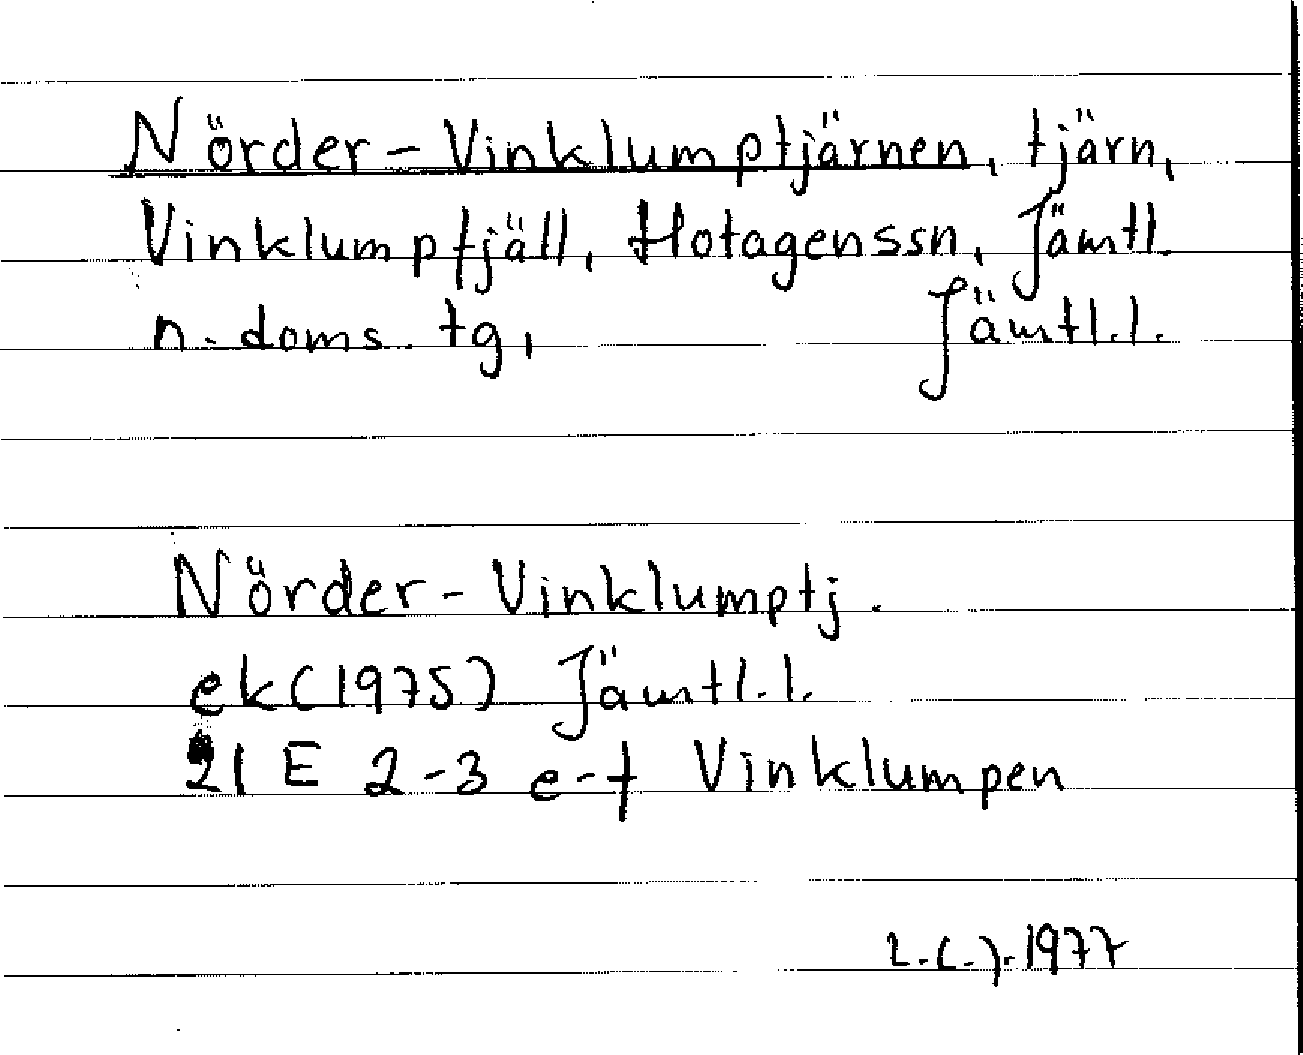 Nörder-Vinklumptjärnen, tjärn,
Vinklumpfjäll, Hotagenssn, Jämtl.
n. doms. tg, Jämtl.l.
Nörder-Vinklumptj.
ek (1975) Jämtl.l.
21 E 2-3 e-f Vinklumpen
1977